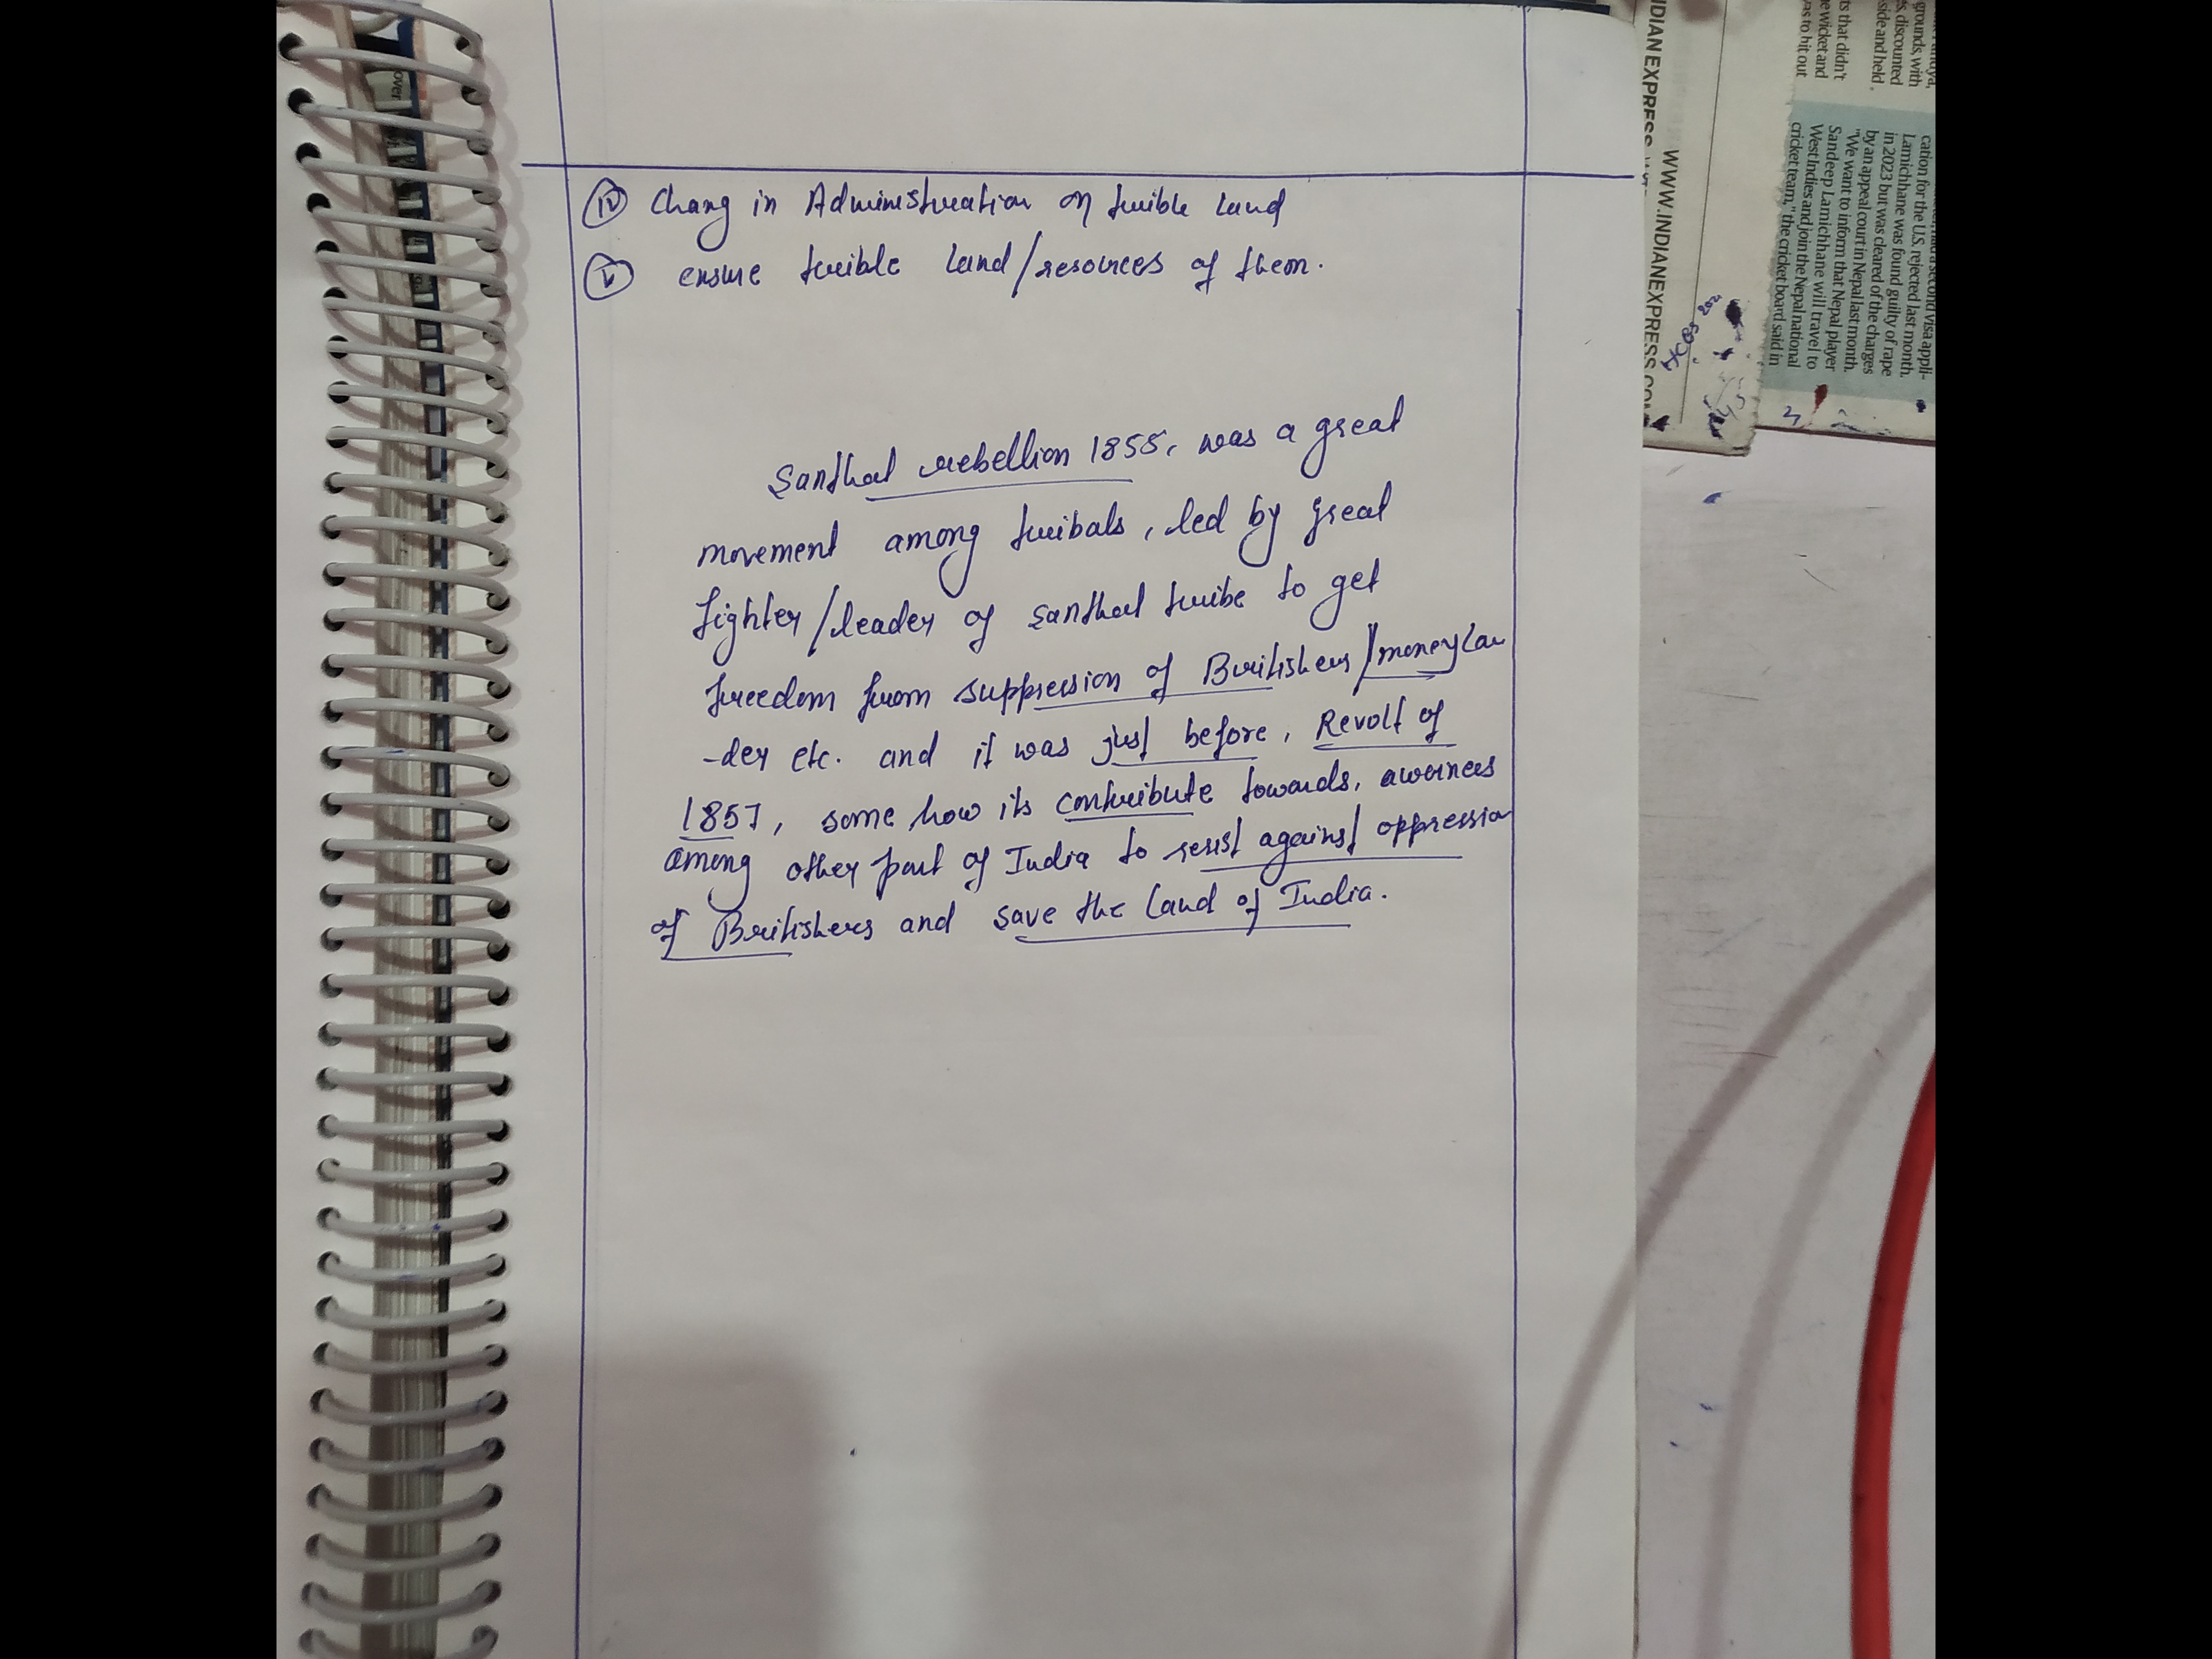 (iv) Chang in Administration on trible land
(v) ensure trible land/resources of them.
Santhal rebellion 1855, was a great
movement among tribals, led by great
fighter/leader of santhal tribe to get
freedom from suppression of Britishers/moneylan
-der etc. and it was just before, Revolt of
1857, some how its contribute towards, awernees
among other part of India to resist against oppression
of Britishers and save the land of India.
INDIAN EXPRESS
WWW.INDIANEXPRESS.COM
grounds, with
s, discounted
side and held
ts that didn't
e wicket and
as to hit out
second visa appli-
cation for the U.S. rejected last month.
Lamichhane was found guilty of rape
in 2023 but was cleared of the charges
by an appeal court in Nepal last month.
"We want to inform that Nepal player
Sandeep Lamichhane will travel to
West Indies and join the Nepal national
cricket team," the cricket board said in
over